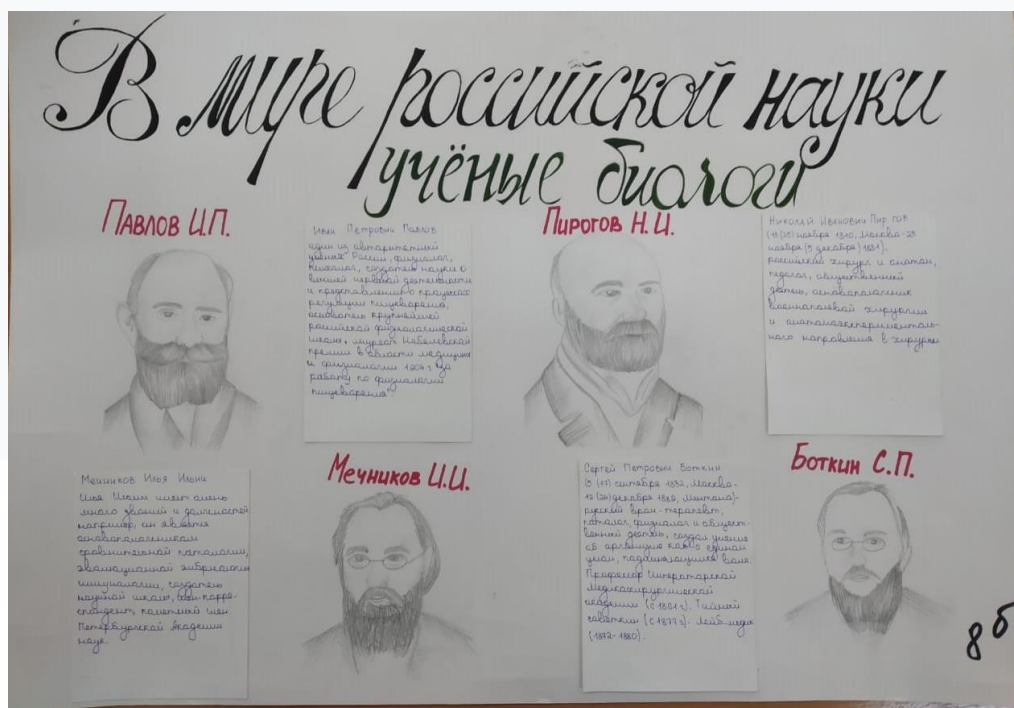 В мире российской науки
учёные биологи
Павлов И.П.
Иван Петрович Павлов
один из авторитетней
учёных России, физиолог,
психолог, создатель науки о
высшей нервной деятельности
и представлений о процессах
регуляции пищеварения,
основатель крупнейшей
российской физиологической
школы, лауреат Нобелевской
премии в области медицины
и физиологии 1904 г "за
работу по физиологии
пищеварения".
Пирогов Н.И.
Николай Иванович Пирогов
(13(25) ноября 1810, Москва - 23
ноября (5 декабря) 1881),
российский хирург и анатом,
педагог, общественный
деятель, основоположник
военнополевой хирургии
и анатомоэксперименталь-
ного направления в хирургии
Мечников И.И.
Мечников Илья Ильич
Илья Ильич имеет очень
много званий и должностей
например, он является
основоположником
сравнительной патологии,
эволюционной эмбриологии
иммунологии, создатель
научной школы, член-корре-
спондент, почётный член
Петербургской Академии
наук.
Боткин С.П.
Сергей Петрович Боткин
(5 (17) сентября 1832, Москва -
12 (24) декабря 1889, Ментона) -
русский врач-терапевт,
патолог, физиолог и общест-
венный деятель, создал учение
об организме как о едином
целом, подчиняющимся воле.
Профессор Императорской
Медикохирургической
академии (с 1861 г.). Тайный
советник (с 1877 г.). Лейб-медик
(1872-1880).
8б